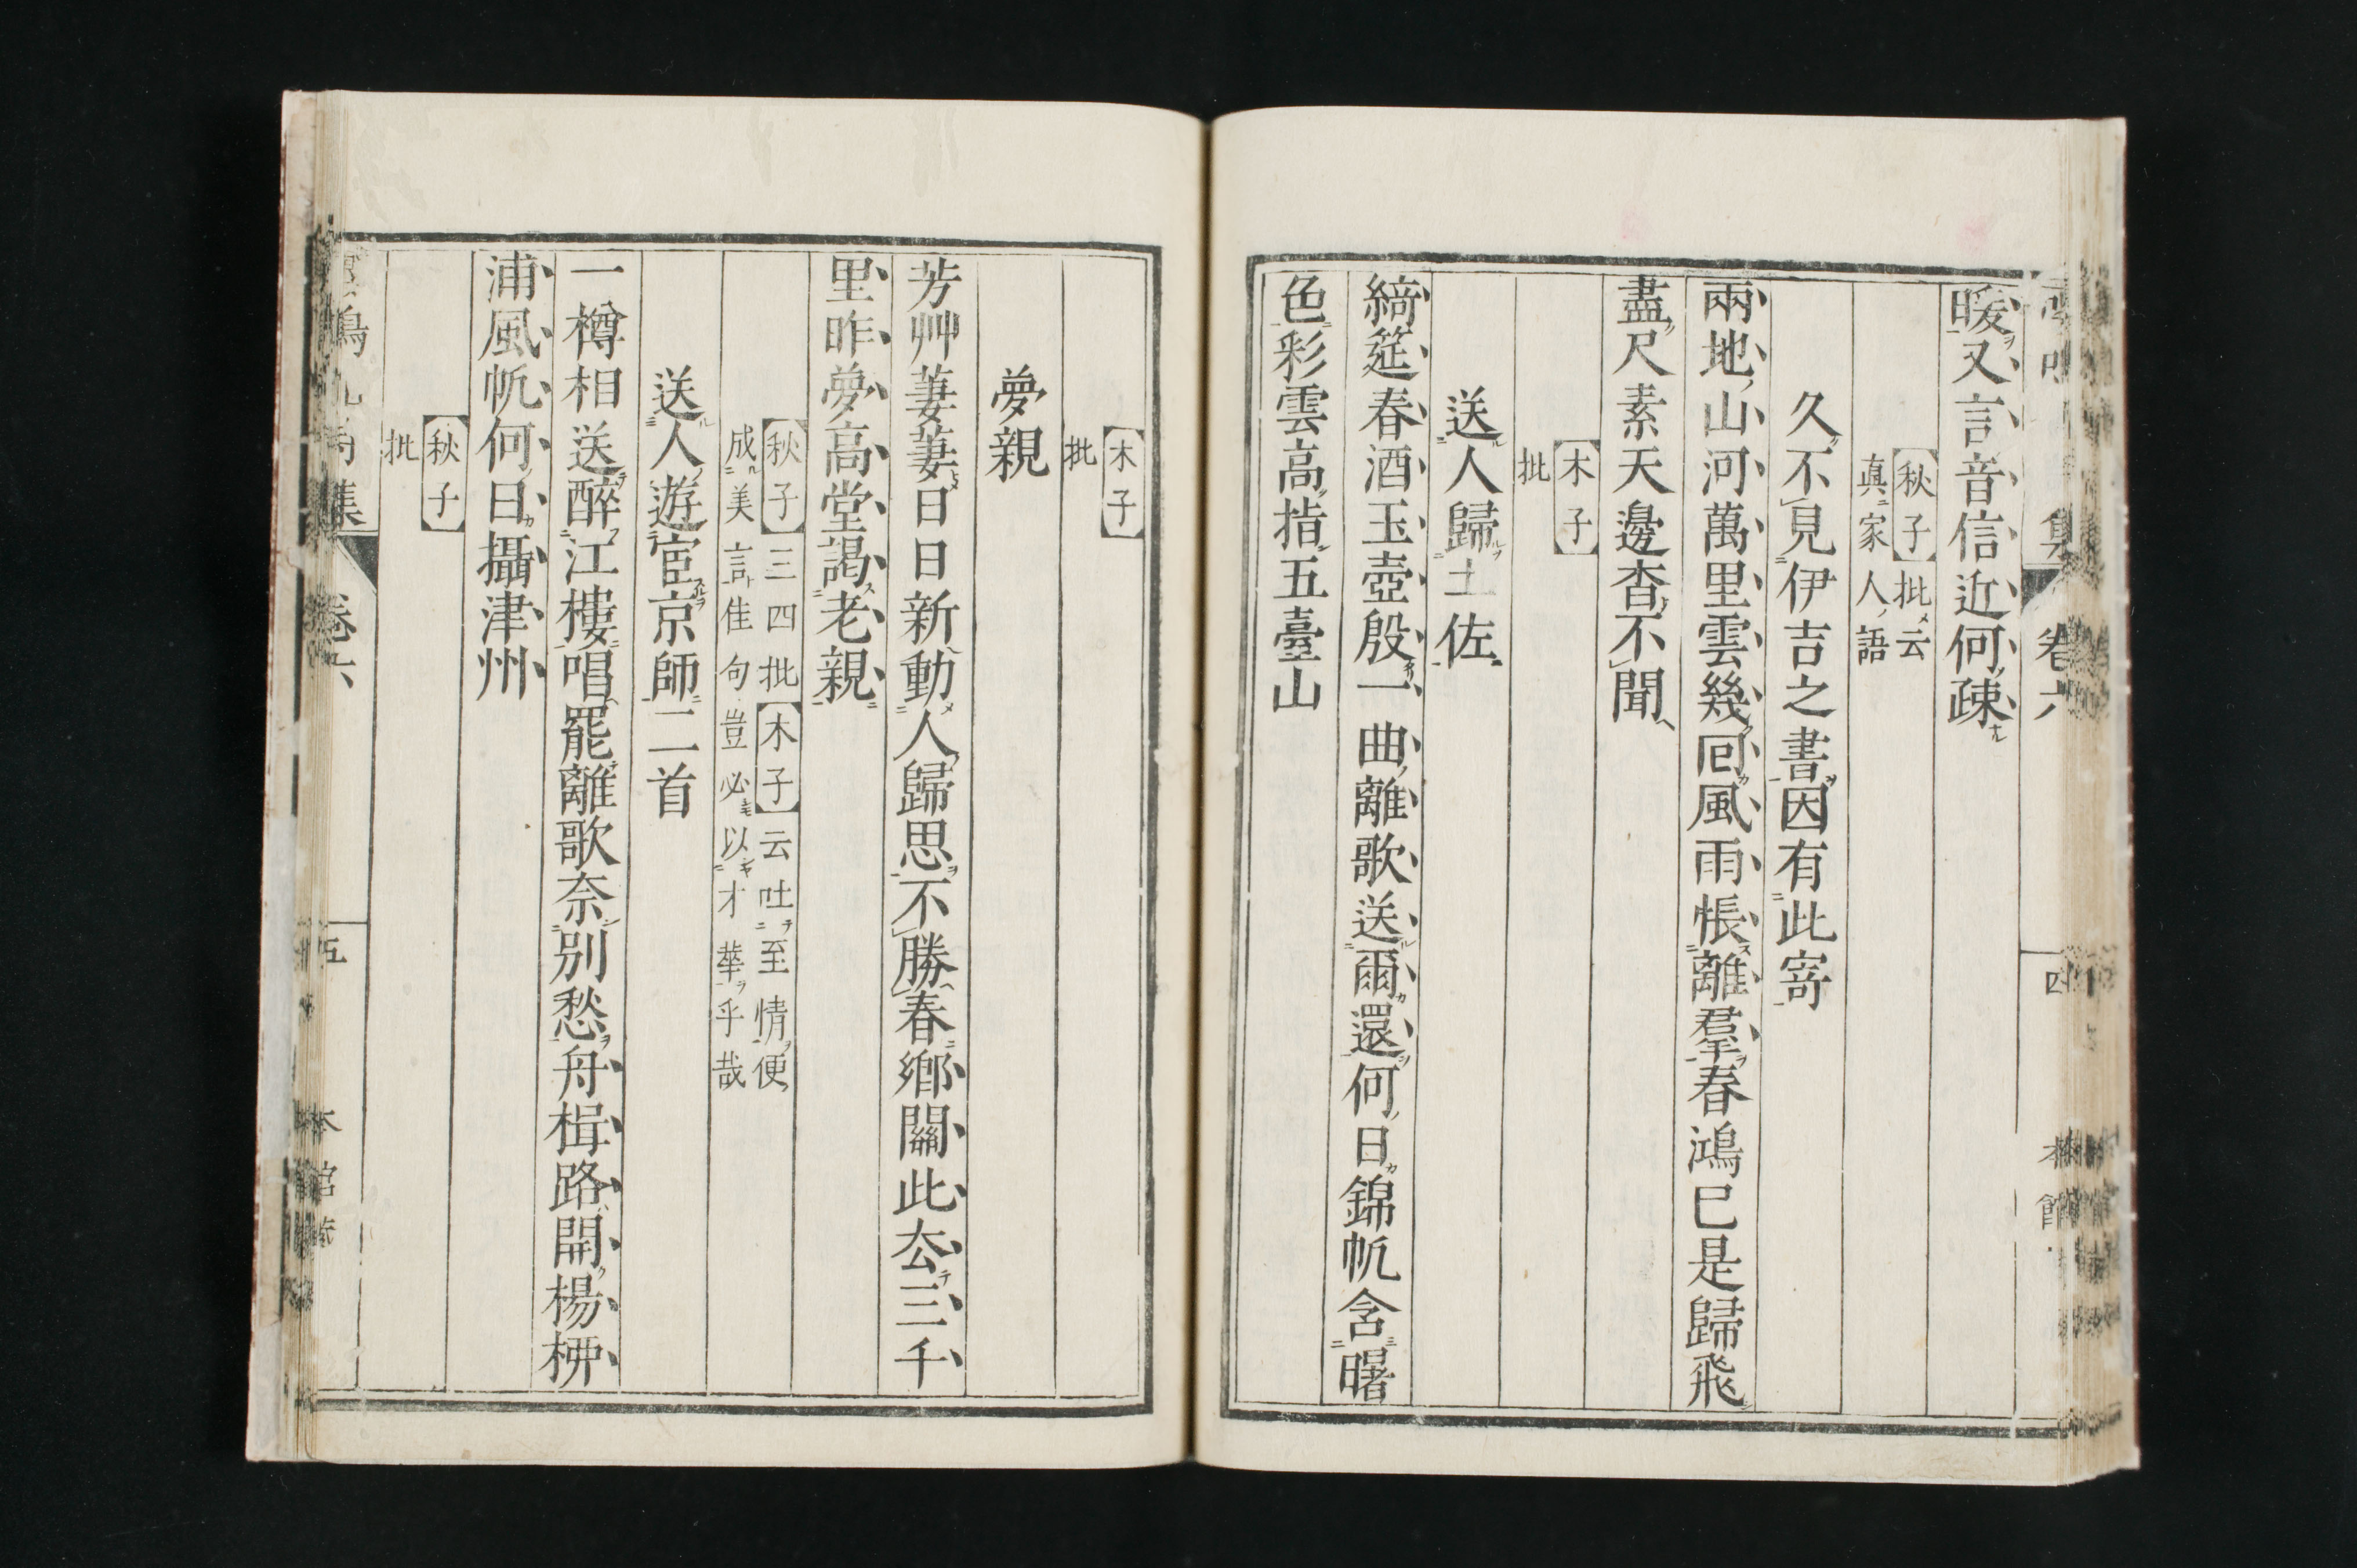 暖又言音信近何疎
【秋子】批云
眞家人語
久不見伊吉之書因有此寄
兩地山河萬里雲幾囘風雨悵離羣春鴻已是歸飛
盡尺素天邊杳不聞
【木子】
批
送人歸土佐
綺筵春酒玉壺殷一曲離歌送爾還何日錦帆含曙
色彩雲高指五臺山
【木子】
批
夢親
芳艸萋萋日日新動人歸思不勝春鄉關此厺三千
里昨夢高堂謁老親
【秋子】三四批【木子】云吐至情便
成美言佳句豈必以才華乎哉
送人遊宦京師二首
一樽相送醉江樓唱罷離歌奈別愁舟楫路開楊桺
浦風帆何日攝津州
【秋子】
批
卷六
五